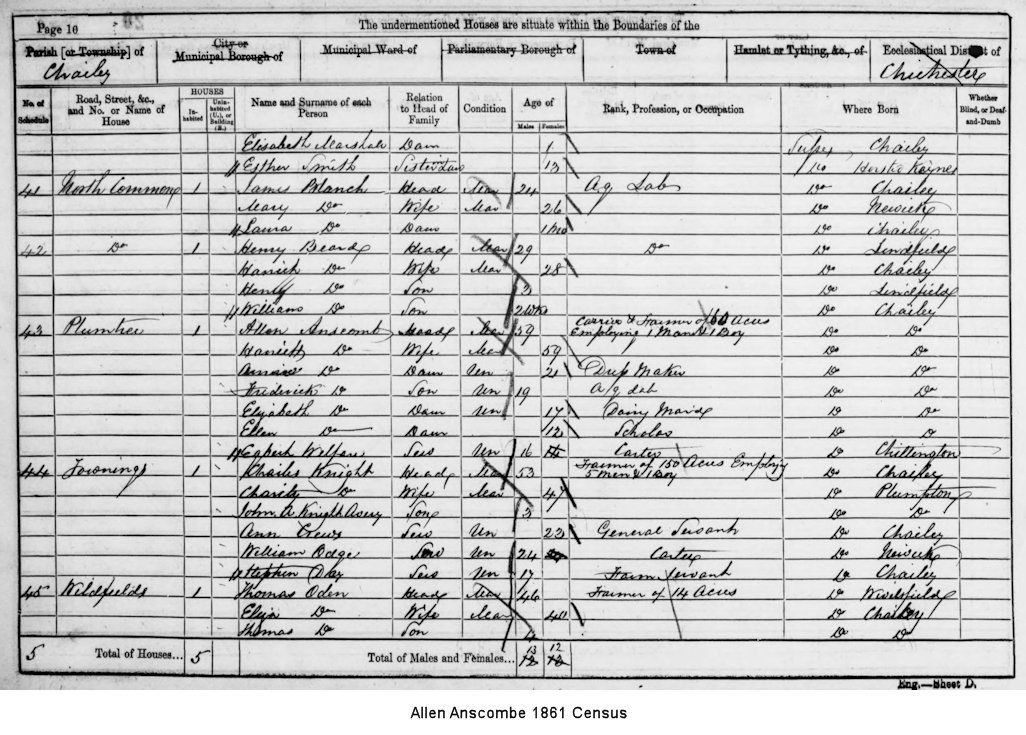 Page 10 The undermentioned Houses are situate within the Boundaries of the
Parish [or Township] of City or Municipal Borough of Municipal Ward of Parliamentary Borough of Town of Hamlet or Tything, &c., of Ecclesiastical District of
Chailey Chichester
No. of Schedule Road, Street, &c., and No. or Name of House HOUSES Inhabited Uninhabited (U.), or Building (B.) Name and Surname of each Person Relation to Head of Family Condition Age of Males Females Rank, Profession, or Occupation Where Born Whether Blind, or Deaf-and-Dumb
Elisabeth Marshall Daur 1 Sussex Chailey
Esther Smith Sister Law 13 Do Horsted Kaynes
41 North Common 1 James Blanch Head Mar 24 Ag Lab Do Chailey
Mary Do Wife Mar 26 Do Newick
Laura Do Daur 1 Mo Do Chailey
42 Do 1 Henry Beard Head Mar 29 Do Do Lindfield
Harriet Do Wife Mar 28 Do Chailey
Henry Do Son 3 Do Lindfield
William Do Son 2 Wks Do Chailey
43 Plumtree 1 Allen Anscomb Head Mar 59 Carrier & Farmer of 60 Acres Employing 1 Man & 1 Boy Do Do
Harriett Do Wife Mar 59 Do Do
Do Daur Un 21 Dress Maker Do Do
Frederick Do Son Un 19 Ag Lab Do Do
Elizabeth Do Daur Un 17 Dairy Maid Do Do
Ellen Do Daur 12 Scholar Do Do
Egbert Welfare Serv Un 16 Carter Do Chiltington
44 Townings 1 Charles Knight Head Mar 53 Farmer of 150 Acres Employing 5 Men & 1 Boy Do Chailey
Charity Do Wife Mar 47 Do Plumpton
John A Knight Avery Son 3 Do Do
Ann Crews Serv Un 23 General Servant Do Chailey
William Serv Un 24 Carter Do Newick
Stephen Day Serv Un 17 Farm Servant Do Chailey
45 Wildfields 1 Thomas Oden Head Mar 46 Farmer of 14 Acres Do Wivelsfield
Eliza Do Wife Mar 40 Do Chailey
Thomas Do Son 4 Do Do
5 Total of Houses... 5 Total of Males and Females... 13 12
Eng.—Sheet D.
Allen Anscombe 1861 Census